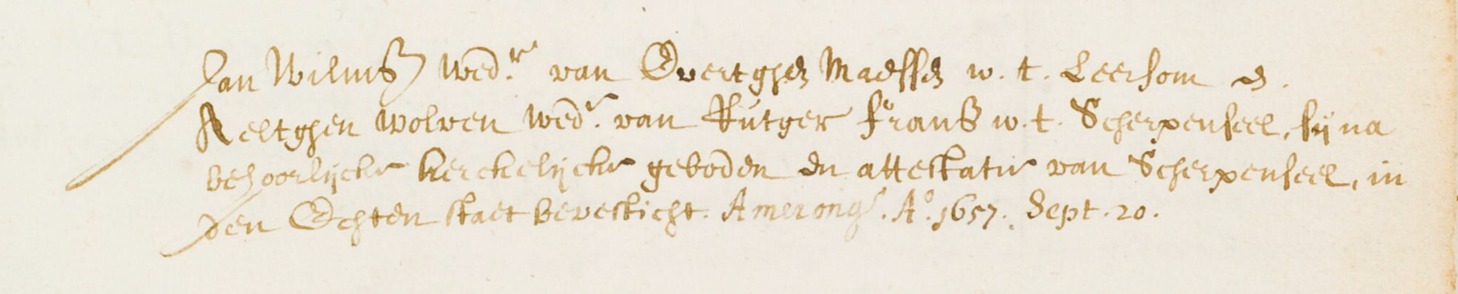 Jan Wilmsz wed.r van Evertghen Maessen w. t. Leersom en.
Aeltghen Wolven wed.e van Rutger Frans w. t. Scherpenseel, sij na
behoorlijcke kerckelijcke geboden en attestatie van Scherpenseel, in
den Echten staet bevesticht. Amerong. Ao. 1657. Sept. 20.